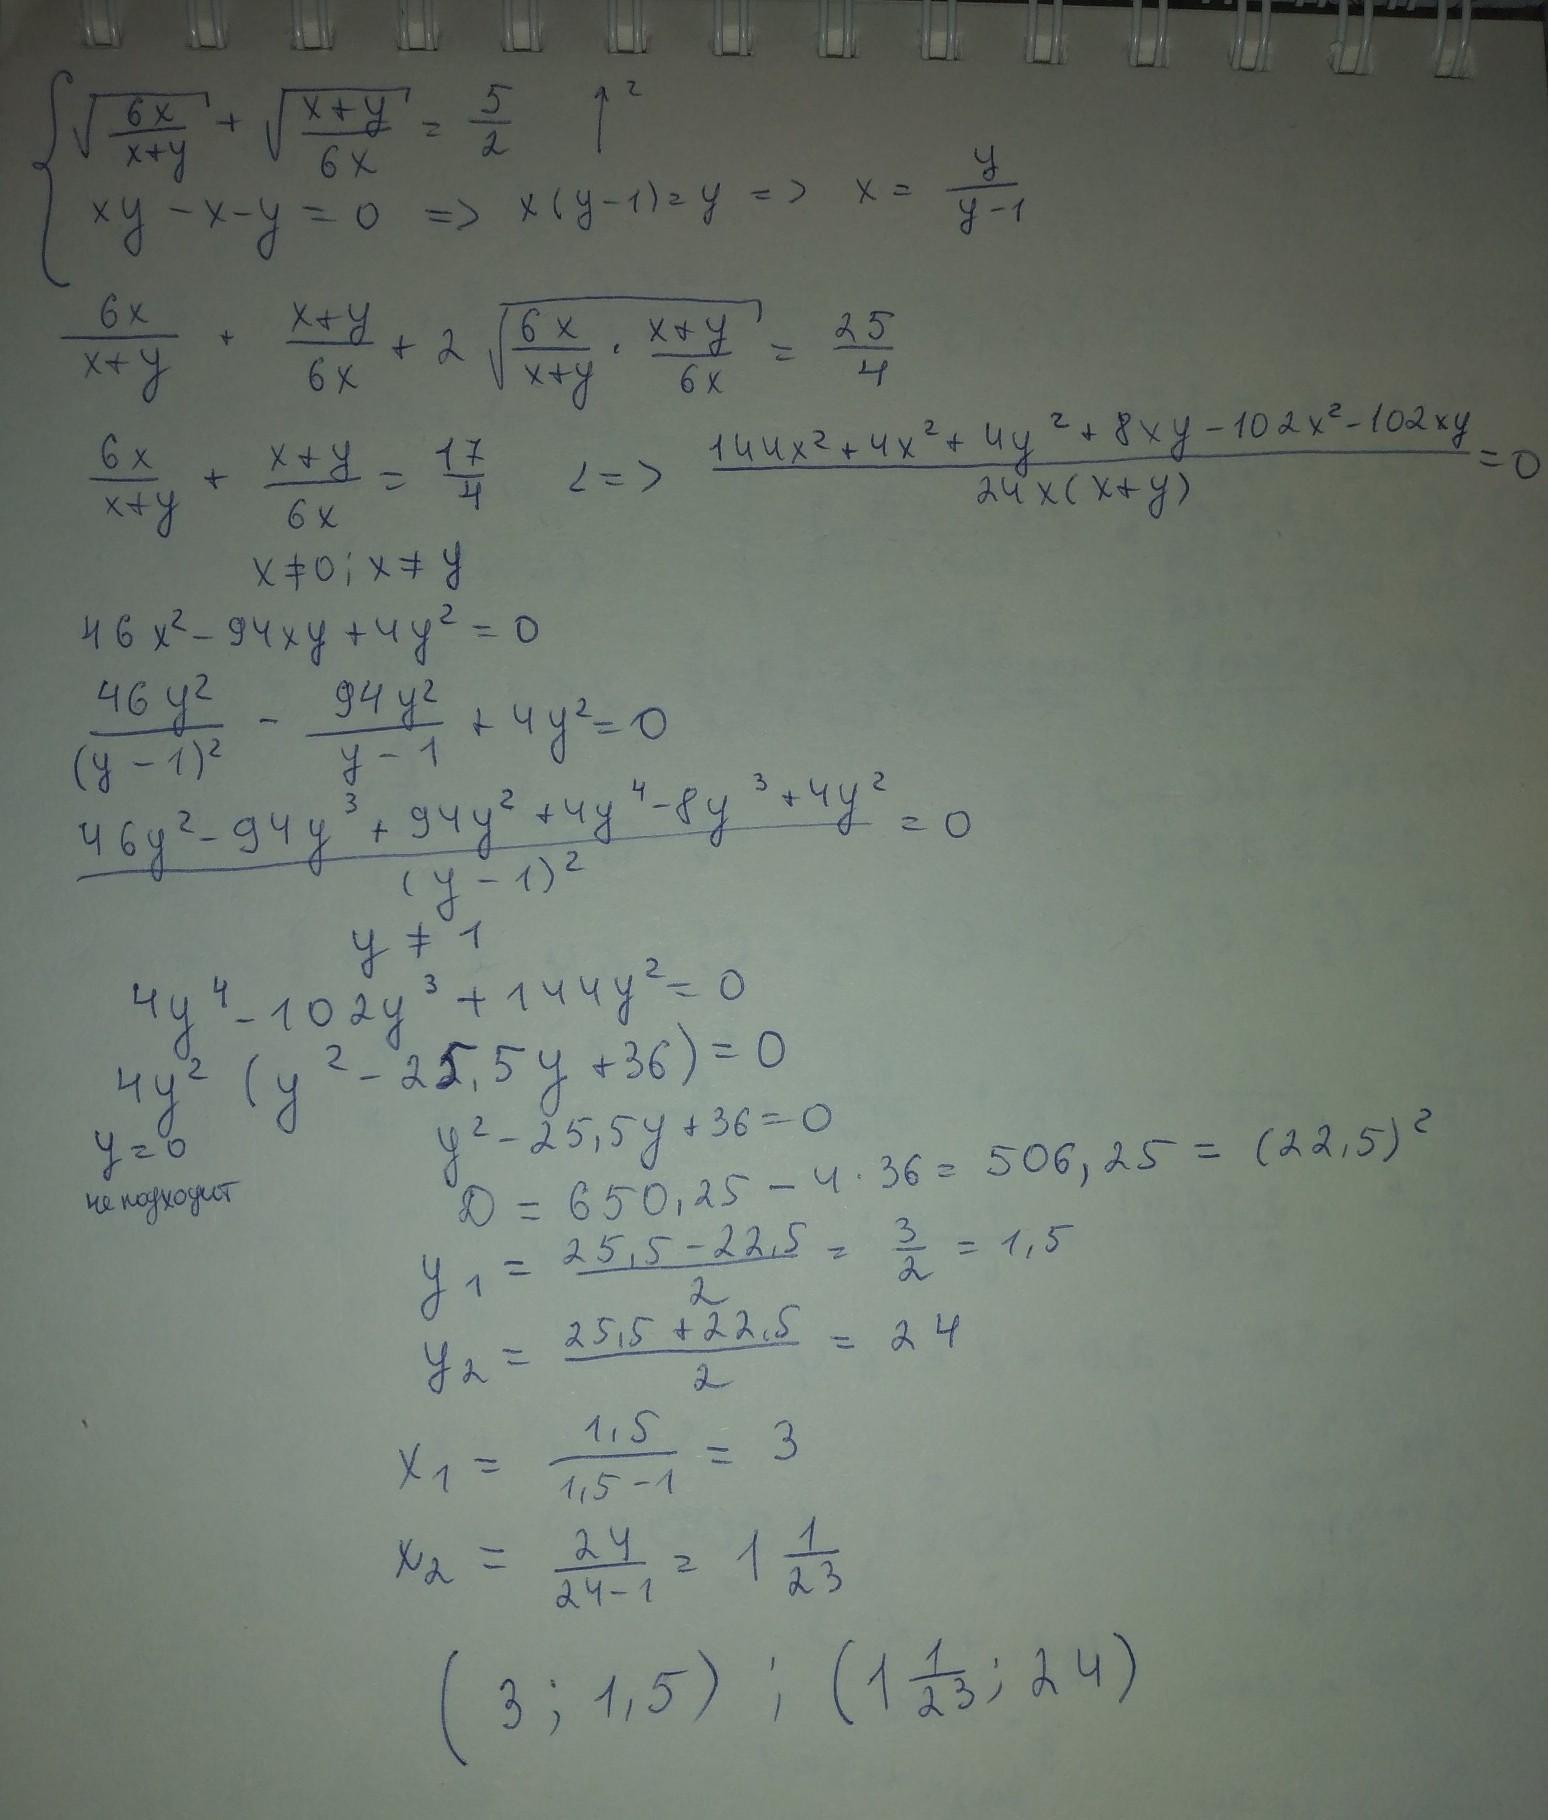 √(6x/(x+y)) + √((x+y)/(6x)) = 5/2 ↑²
xy - x - y = 0 => x(y-1) = y => x = y/(y-1)
6x/(x+y) + (x+y)/(6x) + 2√(6x/(x+y) · (x+y)/(6x)) = 25/4
6x/(x+y) + (x+y)/(6x) = 17/4 <=> (144x² + 4x² + 4y² + 8xy - 102x² - 102xy)/(24x(x+y)) = 0
x ≠ 0; x ≠ y
46x² - 94xy + 4y² = 0
46y²/(y-1)² - 94y²/(y-1) + 4y² = 0
(46y² - 94y³ + 94y² + 4y⁴ - 8y³ + 4y²)/(y-1)² = 0
y ≠ 1
4y⁴ - 102y³ + 144y² = 0
4y² (y² - 25,5y + 36) = 0
y = 0 y² - 25,5y + 36 = 0
не подходит D = 650,25 - 4·36 = 506,25 = (22,5)²
y₁ = (25,5 - 22,5)/2 = 3/2 = 1,5
y₂ = (25,5 + 22,5)/2 = 24
x₁ = 1,5/(1,5-1) = 3
x₂ = 24/(24-1) = 1 1/23
(3; 1,5) ; (1 1/23; 24)